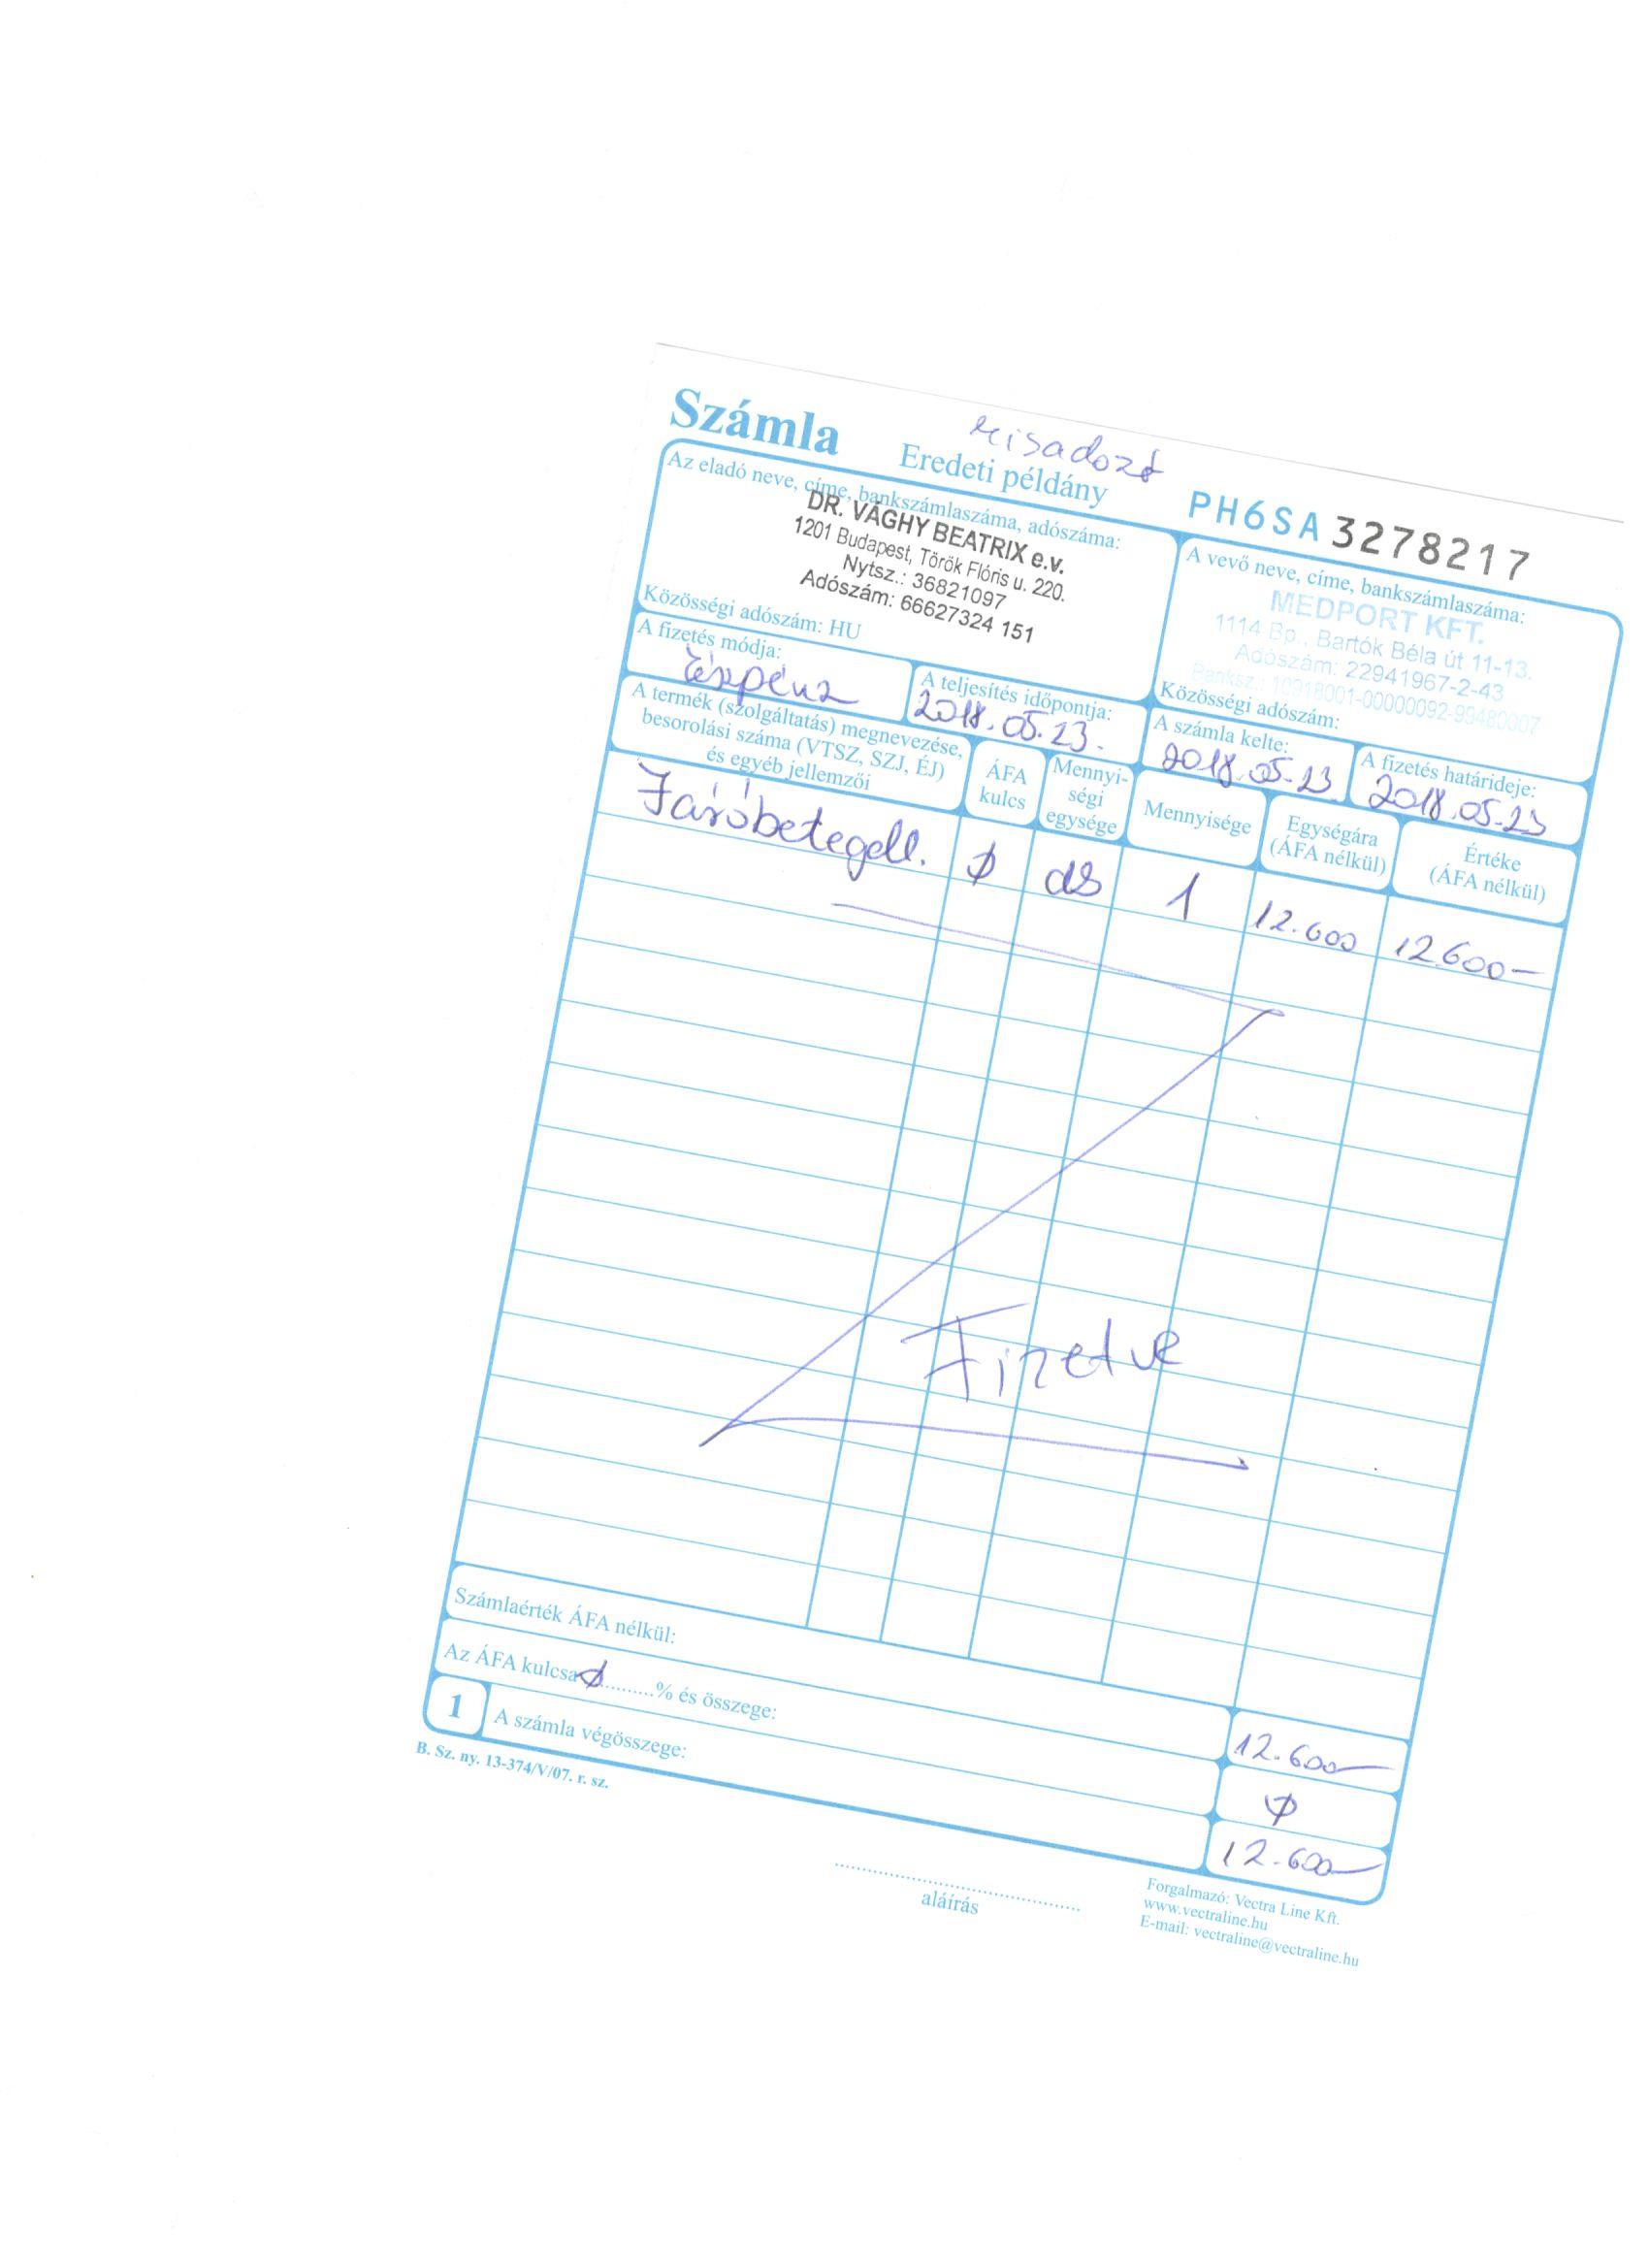 kisadozó
Számla
Eredeti példány
PH6SA 3278217
Az eladó neve, címe, bankszámlaszáma, adószáma:
DR. VÁGHY BEATRIX e.v.
1201 Budapest, Török Flóris u. 220.
Nytsz.: 36821097
Adószám: 66627324 151
Közösségi adószám: HU
A vevő neve, címe, bankszámlaszáma:
MEDPORT KFT.
1114 Bp., Bartók Béla út 11-13.
Adószám: 22941967-2-43
Banksz.: 10918001-00000092-99480007
Közösségi adószám:
A fizetés módja:
Készpénz
A teljesítés időpontja:
2018.05.23.
A számla kelte:
2018.05.23
A fizetés határideje:
2018.05.23
A termék (szolgáltatás) megnevezése,
besorolási száma (VTSZ, SZJ, ÉJ)
és egyéb jellemzői
ÁFA
kulcs
Mennyi-
ségi
egysége
Mennyisége
Egységára
(ÁFA nélkül)
Értéke
(ÁFA nélkül)
Járóbetegell. 0 db 1 12.600 12.600-
Fizetve
Számlaérték ÁFA nélkül: 12.600
Az ÁFA kulcsa 0 ..........% és összege: 0
1 A számla végösszege: 12.600
B. Sz. ny. 13-374/V/07. r. sz.
aláírás
Forgalmazó: Vectra Line Kft.
www.vectraline.hu
E-mail: vectraline@vectraline.hu